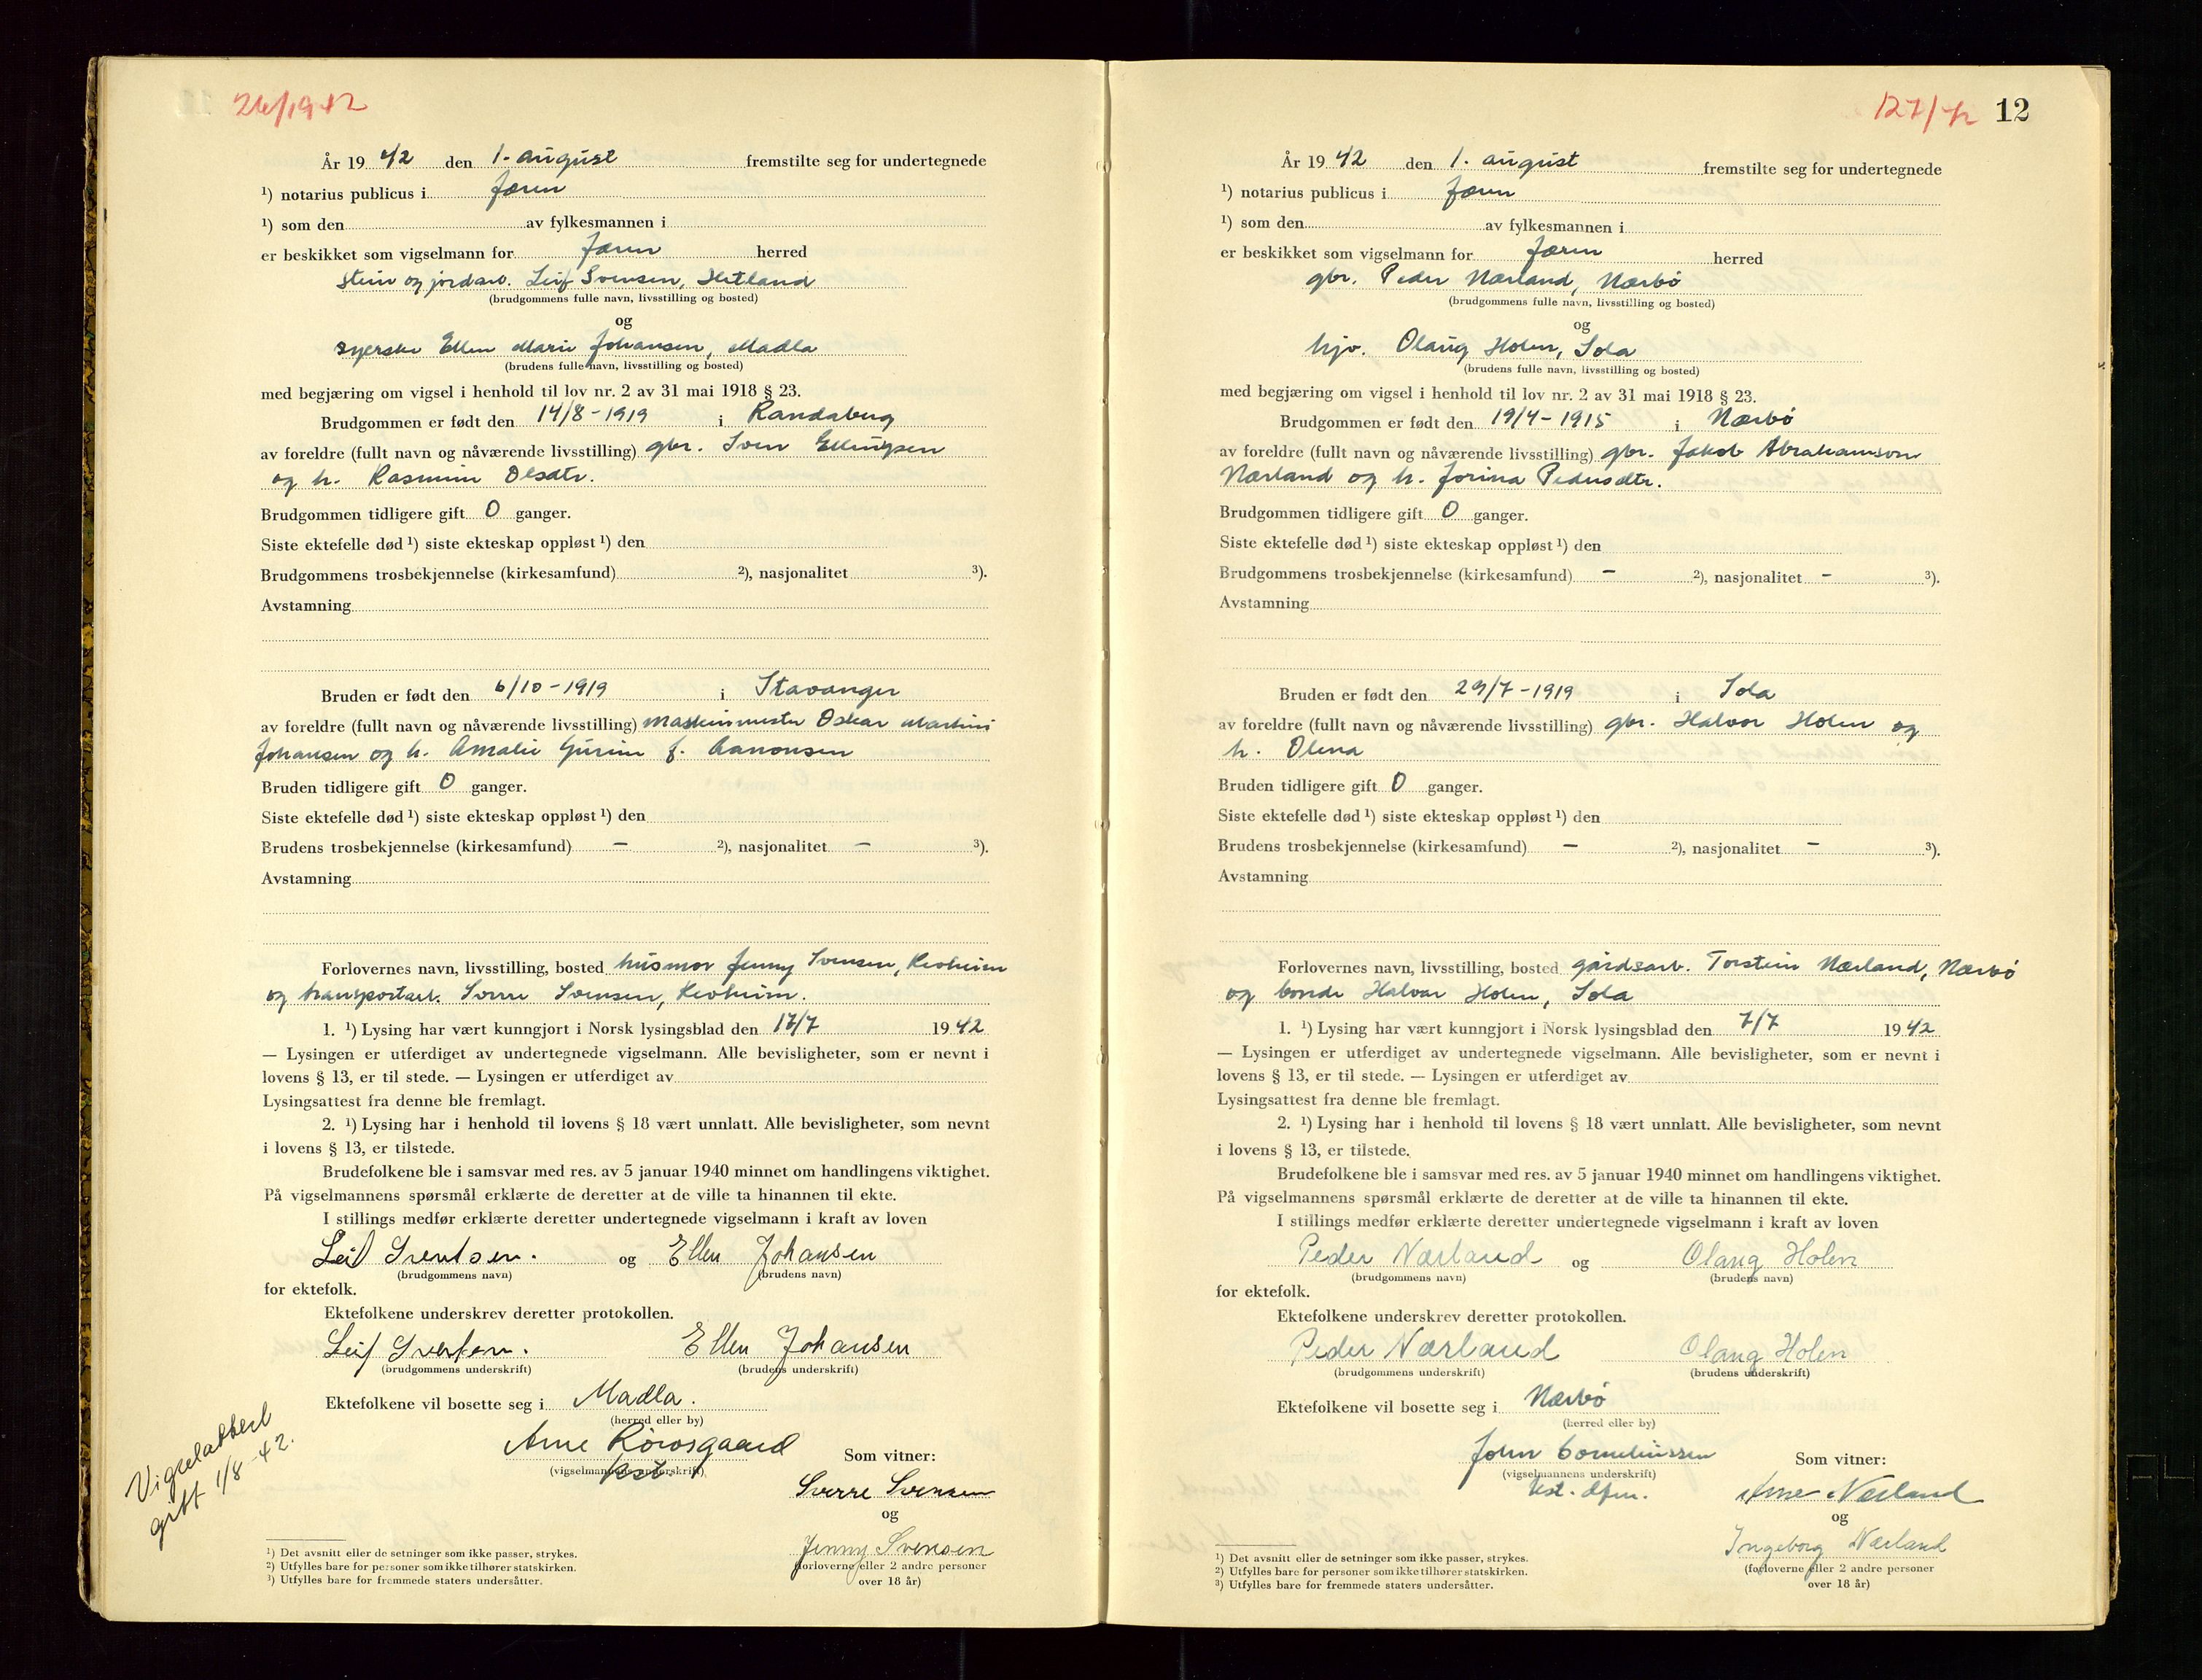 26/1942
År 19 42 den 1. august fremstilte seg for undertegnede
¹) notarius publicus i Jæren
¹) som den av fylkesmannen i
er beskikket som vigselmann for Jæren herred
stein og jordarb. Leif Svensen, Hetland
(brudgommens fulle navn, livsstilling og bosted)
og
syerske Ellen Marie Johansen, Madla
(brudens fulle navn, livsstilling og bosted)
med begjæring om vigsel i henhold til lov nr. 2 av 31 mai 1918 § 23.
Brudgommen er født den 14/8-1919 i Randaberg
av foreldre (fullt navn og nåværende livsstilling) gbr. Sven Ellingsen
og h. Rasmine Olsdtr.
Brudgommen tidligere gift 0 ganger.
Siste ektefelle død ¹) siste ekteskap oppløst ¹) den
Brudgommens trosbekjennelse (kirkesamfund) ²), nasjonalitet ³).
Avstamning
Bruden er født den 6/10-1919 i Stavanger
av foreldre (fullt navn og nåværende livsstilling) maskinmester Oskar Martini
Johansen og h. Amalie Gurine f. Aanonsen
Bruden tidligere gift 0 ganger.
Siste ektefelle død ¹) siste ekteskap oppløst ¹) den
Brudens trosbekjennelse (kirkesamfund) – ²), nasjonalitet – ³).
Avstamning
Forlovernes navn, livsstilling, bosted husmor Jenny Svensen, Revheim
og transportarb. Sverre Svensen, Revheim.
1. ¹) Lysing har vært kunngjort i Norsk lysingsblad den 17/7 19 42
— Lysingen er utferdiget av undertegnede vigselmann. Alle bevisligheter, som er nevnt i
lovens § 13, er til stede. — Lysingen er utferdiget av
Lysingsattest fra denne ble fremlagt.
2. ¹) Lysing har i henhold til lovens § 18 vært unnlatt. Alle bevisligheter, som nevnt
i lovens § 13, er tilstede.
Brudefolkene ble i samsvar med res. av 5 januar 1940 minnet om handlingens viktighet.
På vigselmannens spørsmål erklærte de deretter at de ville ta hinannen til ekte.
I stillings medfør erklærte deretter undertegnede vigselmann i kraft av loven
Leif Svensen. og Ellen Johansen
(brudgommens navn) (brudens navn)
for ektefolk.
Ektefolkene underskrev deretter protokollen.
Leif Svensen. Ellen Johansen
(brudgommens underskrift) (brudens underskrift)
Ektefolkene vil bosette seg i Madla.
(herred eller by)
Arne Rørosgaard
(vigselmannens underskrift)
Som vitner:
Sverre Svensen
og
Jenny Svensen
(forloverne eller 2 andre personer
over 18 år)
Vigselattest
gitt 1/8-42.
¹) Det avsnitt eller de setninger som ikke passer, strykes.
²) Utfylles bare for personer som ikke tilhører statskirken.
³) Utfylles bare for fremmede staters undersåtter.
127/42 12
År 19 42 den 1. august fremstilte seg for undertegnede
¹) notarius publicus i Jæren
¹) som den av fylkesmannen i
er beskikket som vigselmann for Jæren herred
gbr. Peder Nærland, Nærbø
(brudgommens fulle navn, livsstilling og bosted)
og
hjv. Olaug Holen, Sola
(brudens fulle navn, livsstilling og bosted)
med begjæring om vigsel i henhold til lov nr. 2 av 31 mai 1918 § 23.
Brudgommen er født den 19/4-1915 i Nærbø
av foreldre (fullt navn og nåværende livsstilling) gbr. Jakob Abrahamson
Nærland og h. Jorina Pedersdtr.
Brudgommen tidligere gift 0 ganger.
Siste ektefelle død ¹) siste ekteskap oppløst ¹) den
Brudgommens trosbekjennelse (kirkesamfund) – ²), nasjonalitet – ³).
Avstamning
Bruden er født den 29/7-1919 i Sola
av foreldre (fullt navn og nåværende livsstilling) gbr. Halvor Holen og
h. Olena
Bruden tidligere gift 0 ganger.
Siste ektefelle død ¹) siste ekteskap oppløst ¹) den
Brudens trosbekjennelse (kirkesamfund) – ²), nasjonalitet – ³).
Avstamning
Forlovernes navn, livsstilling, bosted gårdsarb. Torstein Nærland, Nærbø
og bonde Halvor Holen, Sola
1. ¹) Lysing har vært kunngjort i Norsk lysingsblad den 7/7 19 42
— Lysingen er utferdiget av undertegnede vigselmann. Alle bevisligheter, som er nevnt i
lovens § 13, er til stede. — Lysingen er utferdiget av
Lysingsattest fra denne ble fremlagt.
2. ¹) Lysing har i henhold til lovens § 18 vært unnlatt. Alle bevisligheter, som nevnt
i lovens § 13, er tilstede.
Brudefolkene ble i samsvar med res. av 5 januar 1940 minnet om handlingens viktighet.
På vigselmannens spørsmål erklærte de deretter at de ville ta hinannen til ekte.
I stillings medfør erklærte deretter undertegnede vigselmann i kraft av loven
Peder Nærland og Olaug Holen
(brudgommens navn) (brudens navn)
for ektefolk.
Ektefolkene underskrev deretter protokollen.
Peder Nærland Olaug Holen
(brudgommens underskrift) (brudens underskrift)
Ektefolkene vil bosette seg i Nærbø
(herred eller by)
John Corneliussen
(vigselmannens underskrift)
Som vitner:
Arne Nærland
og
Ingeborg Nærland
(forloverne eller 2 andre personer
over 18 år)
¹) Det avsnitt eller de setninger som ikke passer, strykes.
²) Utfylles bare for personer som ikke tilhører statskirken.
³) Utfylles bare for fremmede staters undersåtter.